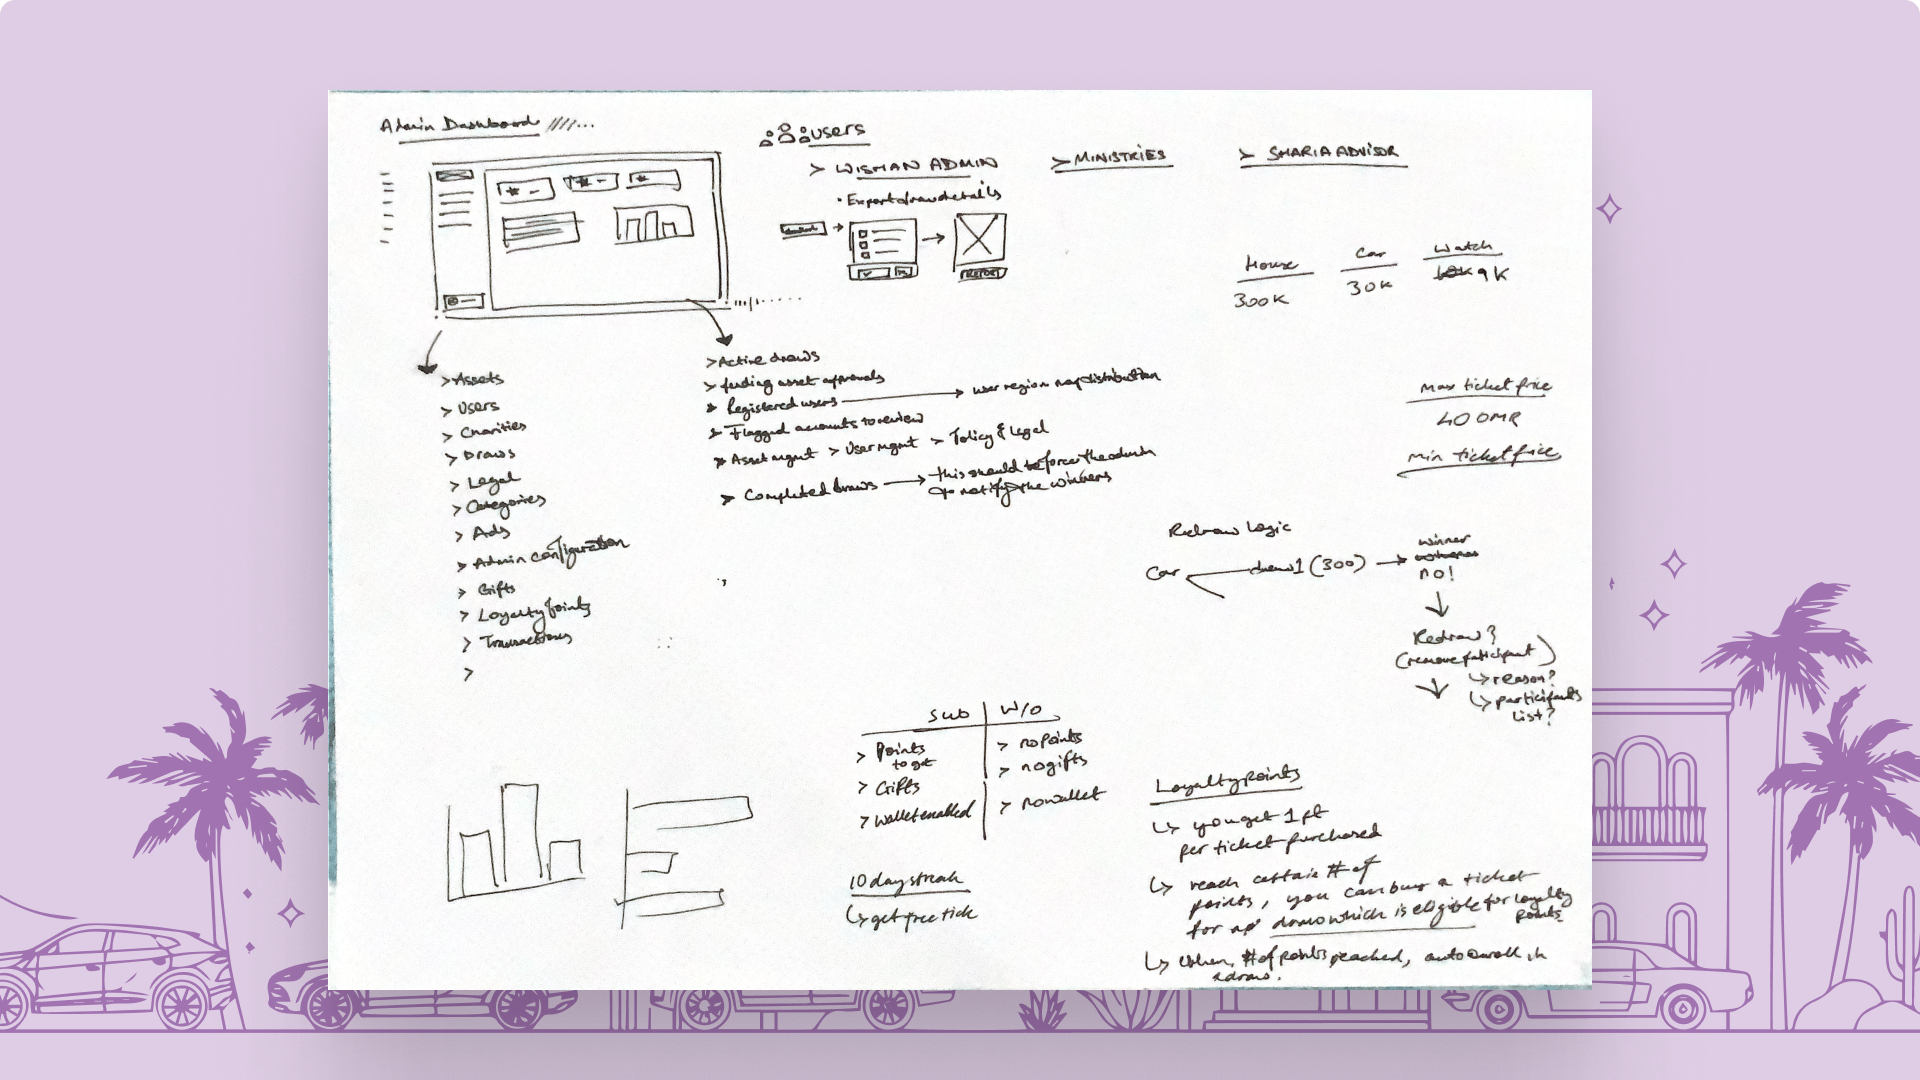 Admin Dashboard
users
> WISMAN ADMIN
• Export draw details
REPORT
> MINISTRIES
> SHARIA ADVISOR
House
300K
Car
30K
Watch
10K 9K
> Assets
> Users
> Charities
> Draws
> Legal
> Categories
> Ads
> Admin configuration
> Gifts
> Loyalty points
> Transactions
>
> Active draws
> Pending asset approvals
> Registered users → user region map distribution
> Flagged accounts to review
> Asset mgmt > User mgmt > Policy & legal
> Completed draws → this should be force the admin
to notify the winners
Max ticket price
40 OMR
Min ticket price
Redraw Logic
Car
draw1 (300) →
winner
no!
Redraw?
(remove participant)
↳ reason?
↳ participants
list?
SUB | W/O
> Points
to get
> Gifts
> Wallet enabled
> no points
> no gifts
> no wallet
10 day streak
↳ get free tick
Loyalty points
↳ you get 1 pt
per ticket purchased
↳ reach certain # of
points, you can buy a ticket
for a draw which is eligible for loyalty
points.
↳ When # of points reached, auto enroll in
a draw.